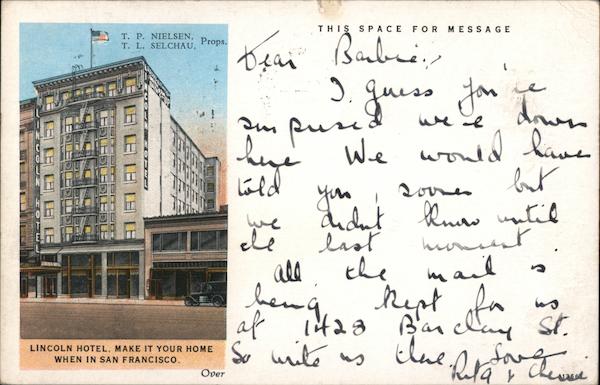 T. P. NIELSEN,
T. L. SELCHAU, Props.
LINCOLN HOTEL
LINCOLN HOTEL, MAKE IT YOUR HOME
WHEN IN SAN FRANCISCO.
Over
THIS SPACE FOR MESSAGE
Dear Barbie,
I guess you're
surprised we're down
here We would have
told you, sooner but
we didn't know until
the last moment.
All the mail is
being kept for us
at 1423 Barclay St.
So write us there. Love
Rita &